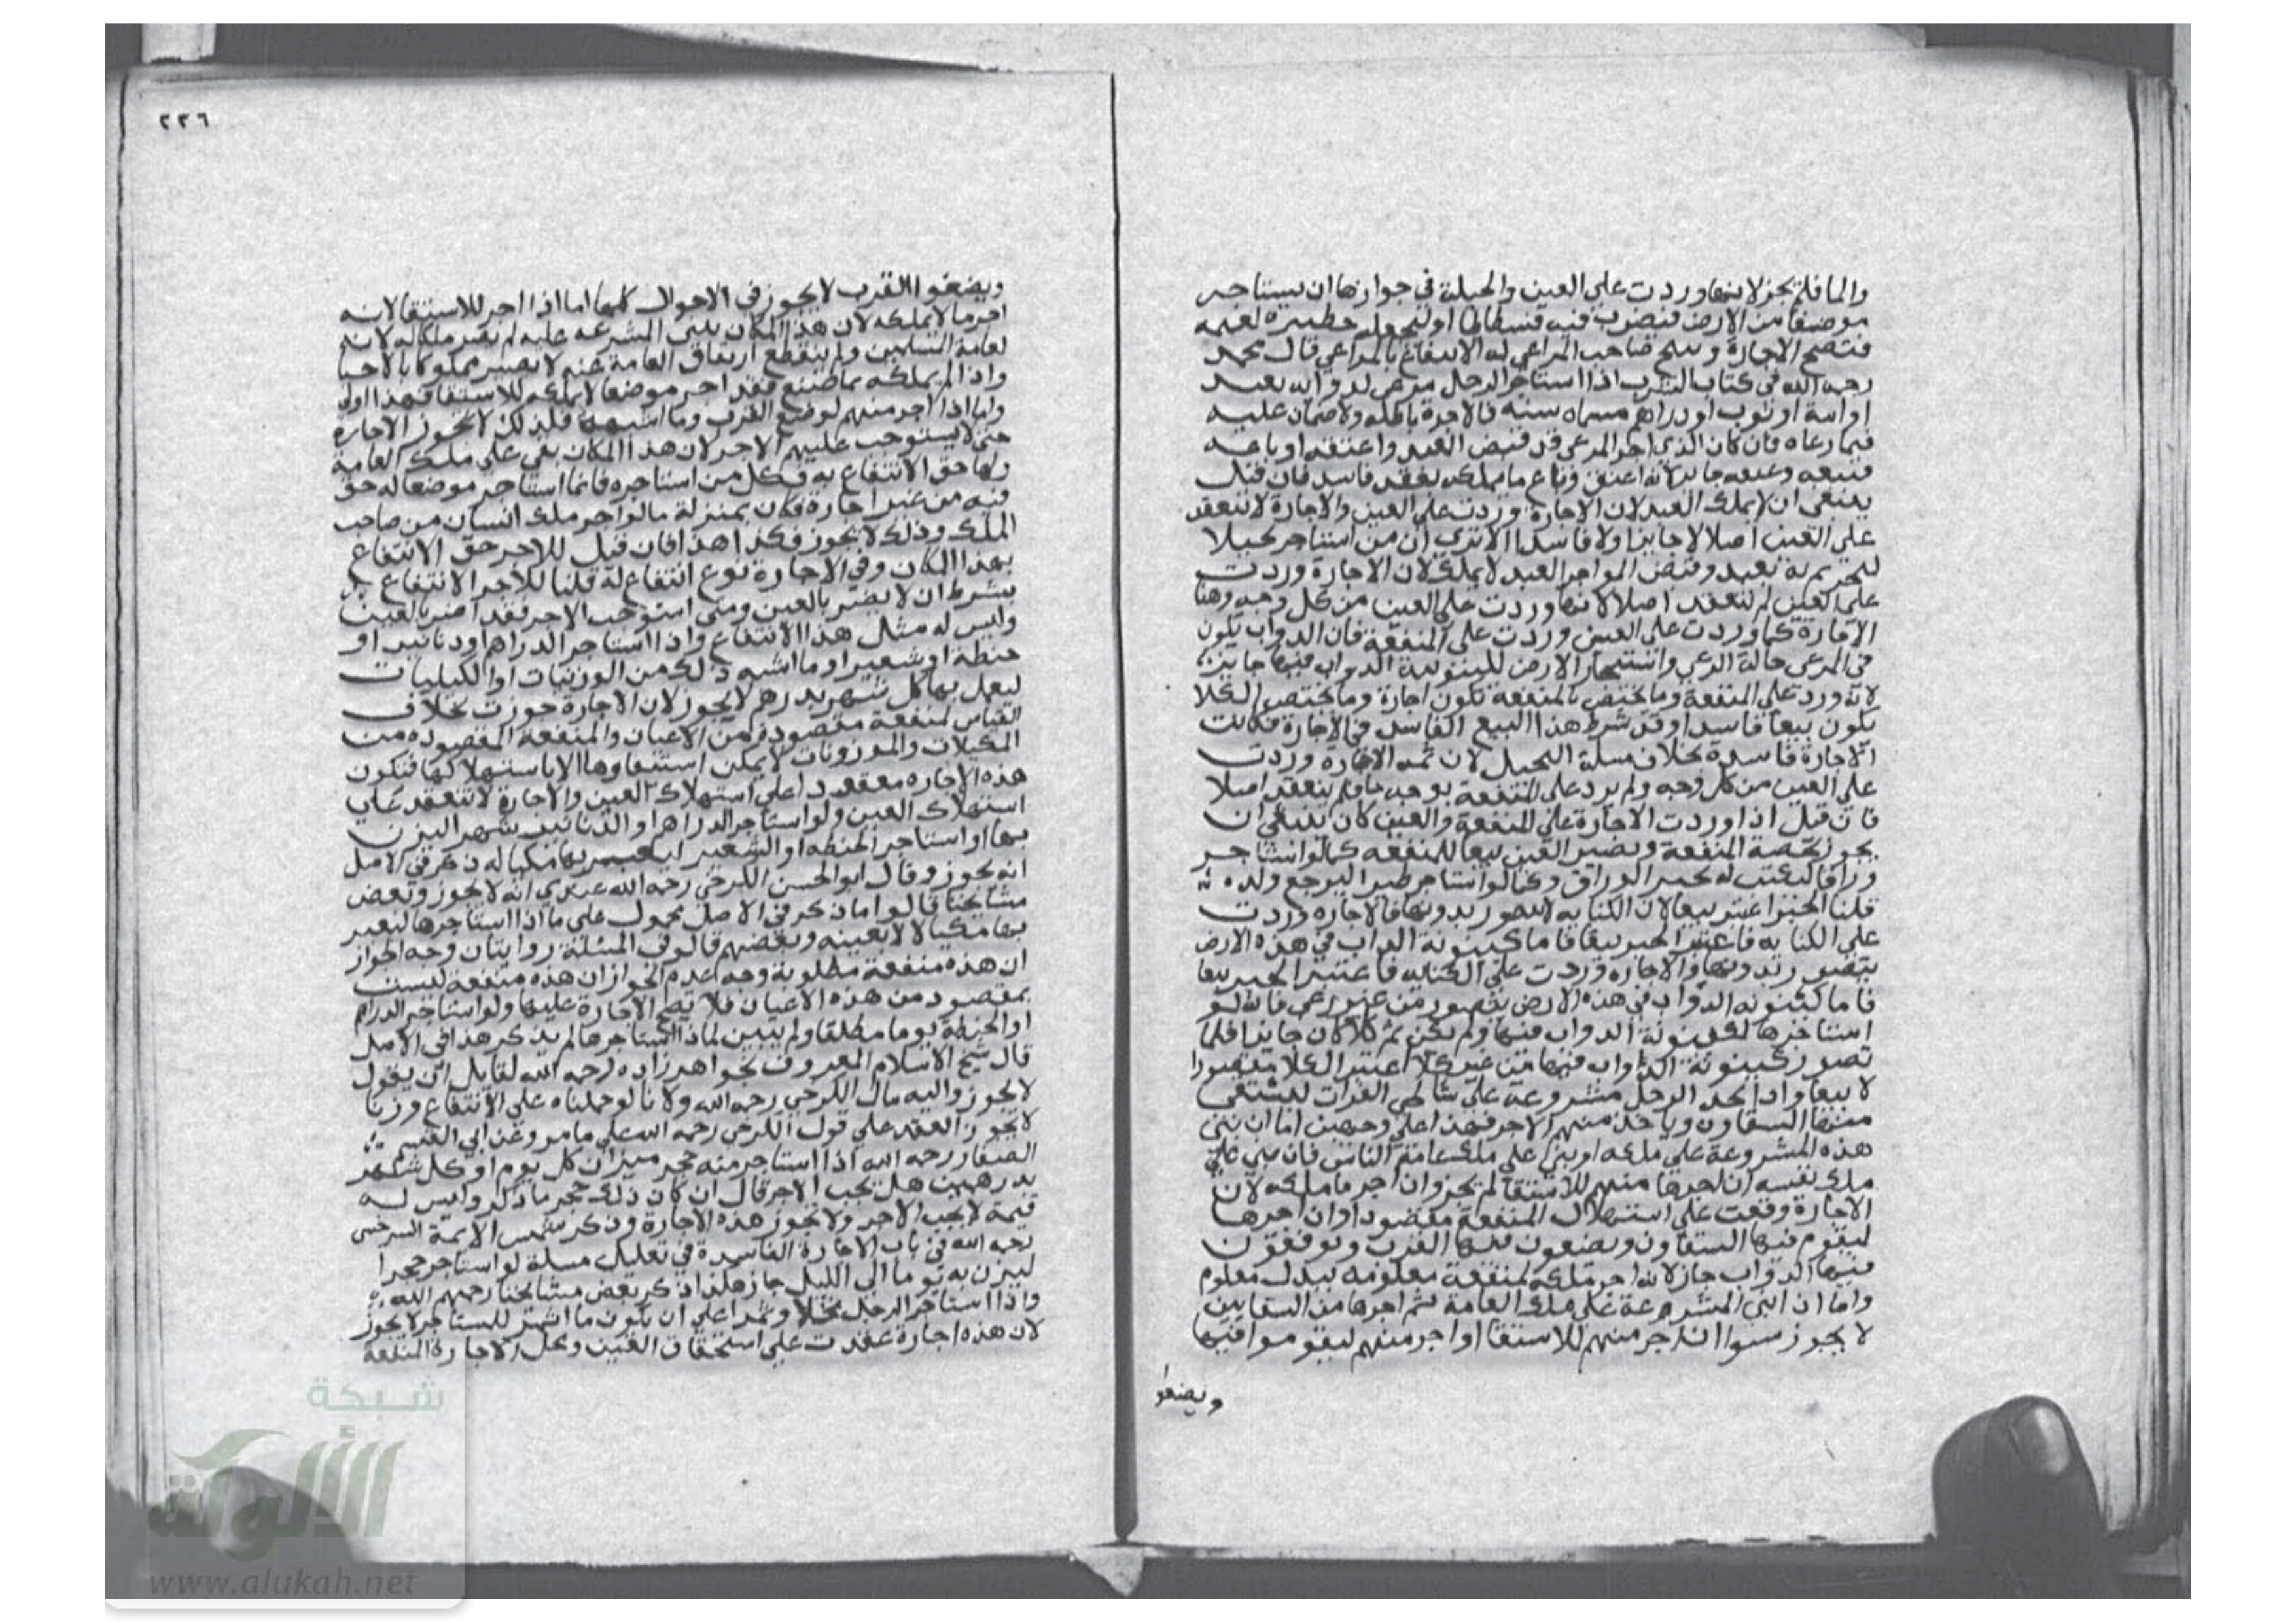 والما فلم يجز لانها وردت على العين والحيلة في جوازها ان يستاجر
موضعا من الارض فيضرب فيه فسطاطا او ليجعله حظيرة لغنمه
فتصح الاجارة ويبيح صاحب المراعي له الانتفاع بالمراعي قال محمد
رحمه الله في كتاب الشرب اذا استاجر الرجل مرعى لدوابه بعبد
او امة او ثوب او دراهم مسماه سنة فالاجرة باطلة ولا ضمان عليه
فيما رعاه فان كان الذي اجر المرعى قد قبض العبد واعتقه او باعه
فبيعه وعتقه جايز لانه اعتق وباع ما يملكه بعقد فاسد فان قيل
ينبغي ان لا يملك العبد لان الاجارة وردت على العين والاجارة لا تنعقد
على العين اصلا لا جايزا ولا فاسدا الا ترى ان من استاجر نخيلا
بعبد وقبض المواجر العبد لا يملك لان الاجارة وردت
على العين لم تنعقد اصلا لانها وردت على العين من كل وجه وهنا
الاجارة كما وردت على العين وردت على المنفعة فان الدواب تكون
في المرعى حالة الرعي واستيجار الارض للينونة الدواب فيها جايز
لانه ورد على المنفعة وما يختص بالمنفعة تكون اجارة وما يختص الكلا
تكون بيعا فاسدا وقد شرط هذا البيع الفاسد في الاجارة فكانت
الاجارة فاسدة بخلاف مسلة النخيل لان ثمه الاجارة وردت
على العين من كل وجه ولم يرد على المنفعة بوجه ما فلم ينعقد اصلا
فان قيل اذا وردت الاجارة على المنفعة والعين كان ينبغي ان
يجوز بحصة المنفعة ويصير العين بيعا للمنفعه كما لو استاجر
وراقا ليكتب له بحبر الوراق وكما لو استاجر ظيرا لترضع ولده
قلنا الحبر اعتبر بيعا لان الكتابه لا تتصور بدونها فالاجاره وردت
على الكتابه فاعتبر الحبر بيعا فاما كينونة الدواب في هذه الارض
يتصور بدونها والاجاره وردت على الكتابه فاعتبر الحبر بيعا
فاما كينونه الدواب في هذه الارض يتصور من غير رعي فانه لو
استاجرها لكينونة الدواب فيها ولم يكن ثم كلا كان جايزا فلما
تصور كينونة الدواب فيها من غير كلا اعتبر الكلا مقصودا
لا بيعا واذا اتخذ الرجل مشروعة على شاطي الفرات ليستقي
منها السقاون وياخذ منهم الاجر فهذا على وجهين اما ان بنى
هذه المشروعة على ملكه او بنى على ملك عامة الناس فان بنى على
ملك نفسه ان اجرها منهم للاستقا لم يجز وان اجر ما ملكه لان
الاجارة وقعت على استهلاك المنفعة مقصودا وان اجرها
ليقوم فيها السقاون ويضعون فيها القرب ويوقفون
فيها الدواب جاز لانه اجر ملكه لمنفعة معلومه ببدل معلوم
واما ان ابتنى المشرعة على ملك العامة ثم اجرها من السقايين
لا يجوز سوا ان اجر منهم للاستقا او اجر منهم ليقوموا فيها
ويضعوا
٢٣٦
ويضعوا القرب لا يجوز في الاحوال كلها اما اذا اجر للاستقا لانه
اجر ما لا يملكه لان هذا المكان يبنى المشرعه عليه لم يصر ملكا له لانه
لعامة المسلمين ولم ينقطع ارتفاق العامة عنه لا يصير مملوكا بالاحيا
واذا لم يملكه بما صنع فقد اجر موضعا لا يملكه للاستقا فهذا اولى
واما اذا اجر منهم لوضع القرب وما اشبهه فلذلك لا تجوز الاجارة
حتى لا يستوجب عليهم الاجر لان هذا المكان بقي على ملك العامة
ولها حق الانتفاع به فكل من استاجره فانما استاجر موضعا له حق
فيه من غير اجارة فكان بمنزلة ما لو اجر ملك انسان من صاحب
الملك وذلك لا يجوز فكذا هذا فان قيل للاجر حق الانتفاع
بهذا المكان وفي الاجارة نوع انتفاع له قلنا للاجر الانتفاع به
بشرط ان لا يضر بالعين ومتى استوجب الاجر فقد اضر بالعين
وليس له مثل هذا الانتفاع واذا استاجر الدراهم او دنانير او
حنطة او شعيرا وما اشبه ذلك من الوزنيات او الكيليات
ليعمل بها كل شهر بدرهم لا يجوز لان الاجارة جوزت بخلاف
القياس لمنفعة مقصودة من الاعيان والمنفعة المقصوده من
المكيلات والموزونات لا يمكن استيفاوها الا باستهلاكها فتكون
هذه الاجاره معقودا على استهلاك العين والاجارة لا تنعقد على
استهلاك العين ولو استاجر الدراهم او الدنانير شهرا ليزن
بها او استاجر الحنطه او الشعير ليعير بها مكيالا له ذكر في الاصل
انه يجوز وقال ابو الحسن الكرخي رحمه الله عندي انه لا يجوز وبعض
مشايخنا قالوا ما ذكر في الاصل محمول على ما اذا استاجرها ليعير
بها مكيالا لا بعينه وبعضهم قالو في المسئلة روايتان وجه الجواز
ان هذه منفعة مطلوبة وجه عدم الجواز ان هذه منفعة ليست
بمقصود من هذه الاعيان فلا تصح الاجارة عليها ولو استاجر الدراهم
او الحنطة يوما مطلقا ولم يبين لماذا استاجرها لم يذكر هذا في الاصل
قال شيخ الاسلام المعروف بخواهرزاده رحمه الله لقايل ان يقول
لا يجوز واليه مال الكرخي رحمه الله ولانا لو حملناه على الانتفاع وزنا
لا يجوز العقد على قول الكرخي رحمه الله على ما مر وعن ابي القسم
الصفار رحمه الله اذا استاجر منه حجر ميزان كل يوم او كل شهر
بدرهمين هل يجب الاجر قال ان كان ذلك حجر ما ذكر وليس له
قيمة لا يجب الاجر ولا تجوز هذه الاجارة وذكر شمس الايمة السرخسي
رحمه الله في باب الاجارة الفاسدة في تعليل مسلة لو استاجر حجرا
ليزن به يوما الى الليل جاز هكذا ذكر بعض مشايخنا رحمهم الله
واذا استاجر الرجل نخلا وثمرا على ان يكون ما اثمر للمستاجر لا يجوز
لان هذه اجارة عقدت على استحقاق العين ومحل الاجارة المنفعة
شبكة
الألوكة
www.alukah.net